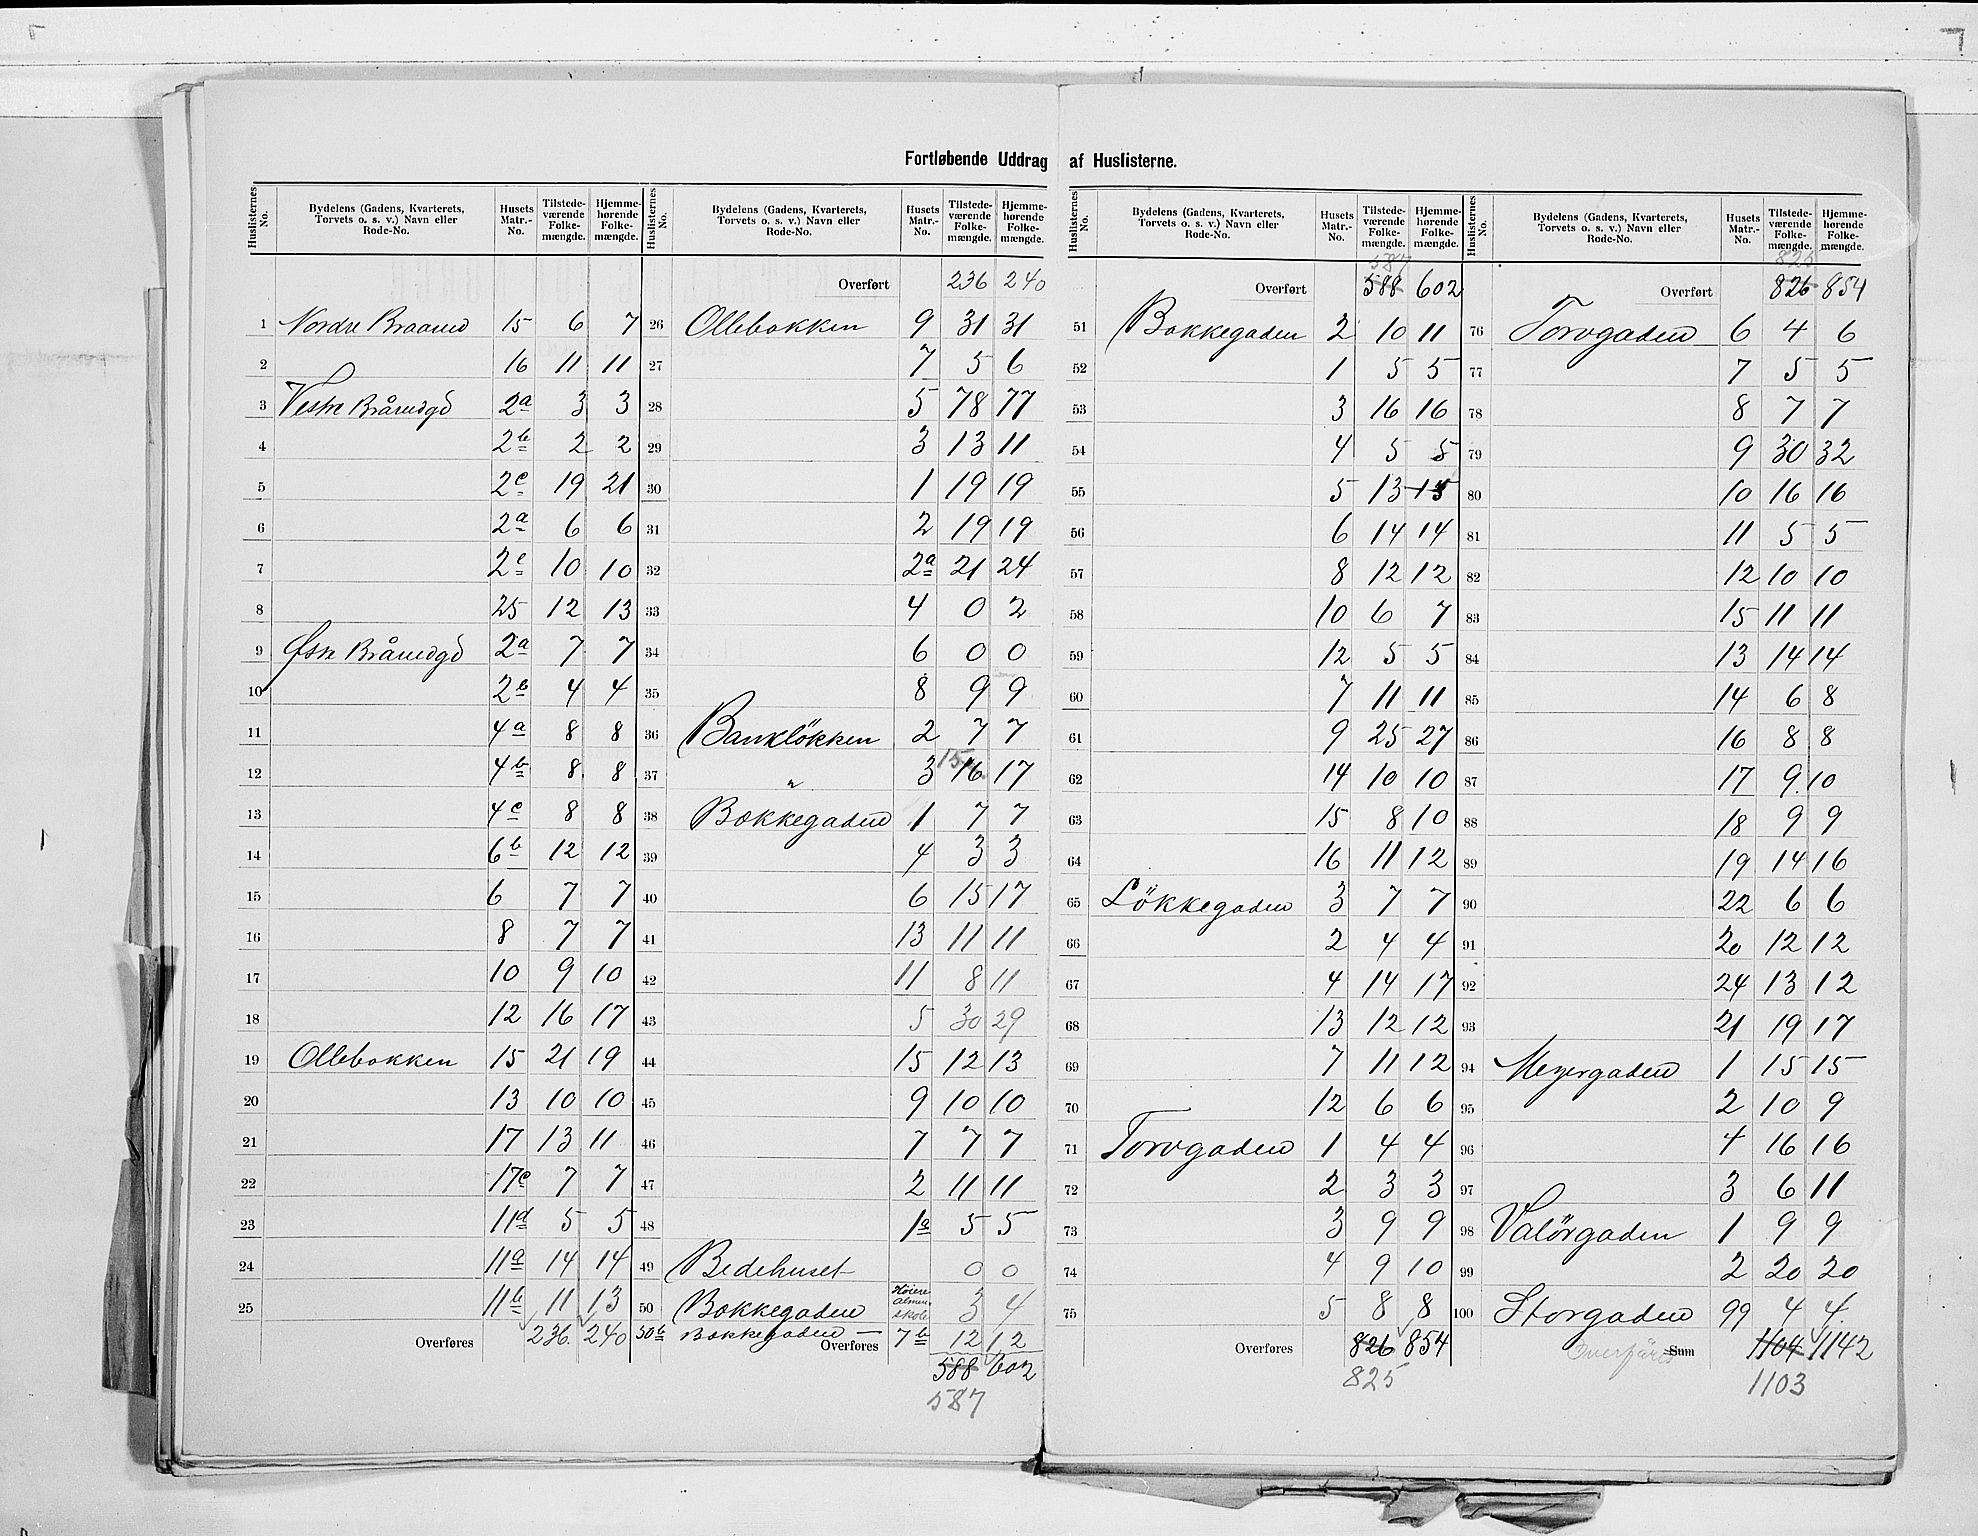 Fortløbende Uddrag af Huslisterne.
Huslisternes No. | Bydelens (Gadens, Kvarterets, Torvets o. s. v.) Navn eller Rode-No. | Husets Matr.-No. | Tilstede-værende Folke-mængde. | Hjemme-hørende Folke-mængde.
1 Nordre Braand 15 6 7
2 16 11 11
3 Vestre Bråndgd 2a 3 3
4 2b 2 2
5 2c 19 21
6 2a 6 6
7 2e 10 10
8 25 12 13
9 Østre Bråndgd 2a 7 7
10 2b 4 4
11 4a 8 8
12 4b 8 8
13 4c 8 8
14 6b 12 12
15 6 7 7
16 8 7 7
17 10 9 10
18 12 16 17
19 Ollebakken 15 21 19
20 13 10 10
21 17 13 11
22 17c 7 7
23 11d 5 5
24 11a 14 14
25 11b 11 13
Overføres 236 240
Huslisternes No. | Bydelens (Gadens, Kvarterets, Torvets o. s. v.) Navn eller Rode-No. | Husets Matr.-No. | Tilstede-værende Folke-mængde. | Hjemme-hørende Folke-mængde.
Overført 236 240
26 Ollebakken 9 31 31
27 7 5 6
28 5 78 77
29 3 13 11
30 1 19 19
31 2 19 19
32 2a 21 24
33 4 0 2
34 6 0 0
35 8 9 9
36 Bankløkken 2 7 7
37 " 3 15 16 17
38 Bakkegaden 1 7 7
39 4 3 3
40 6 15 17
41 13 11 11
42 11 8 11
43 5 30 29
44 15 12 13
45 9 10 10
46 7 7 7
47 2 11 11
48 1a 5 5
49 Bedehuset 0 0
50 Bakkegaden Høiere Almen skole 3 4
50b Bakkegaden — Overføres 7b 12 12
588 602
587
Huslisternes No. | Bydelens (Gadens, Kvarterets, Torvets o. s. v.) Navn eller Rode-No. | Husets Matr.-No. | Tilstede-værende Folke-mængde. | Hjemme-hørende Folke-mængde.
587
Overført 588 602
51 Bakkegaden 2 10 11
52 1 5 5
53 3 16 16
54 4 5 5
55 5 13 15
56 6 14 14
57 8 12 12
58 10 6 7
59 12 5 5
60 7 11 11
61 9 25 27
62 14 10 10
63 15 8 10
64 16 11 12
65 Løkkegaden 3 7 7
66 2 4 4
67 4 14 17
68 13 12 12
69 7 11 12
70 12 6 6
71 Torvgaden 1 4 4
72 2 3 3
73 3 9 9
74 4 9 10
75 5 8 8
Overføres 826 854
825
Huslisternes No. | Bydelens (Gadens, Kvarterets, Torvets o. s. v.) Navn eller Rode-No. | Husets Matr.-No. | Tilstede-værende Folke-mængde. | Hjemme-hørende Folke-mængde.
825
Overført 826 854
76 Torvgaden 6 4 6
77 7 5 5
78 8 7 7
79 9 30 32
80 10 16 16
81 11 5 5
82 12 10 10
83 15 11 11
84 13 14 14
85 14 6 8
86 16 8 8
87 17 9 10
88 18 9 9
89 19 14 16
90 22 6 6
91 20 12 12
92 24 13 12
93 21 19 17
94 Meyergaden 1 15 15
95 2 10 9
96 4 16 16
97 3 6 11
98 Valörgaden 1 9 9
99 2 20 20
100 Storgaden 99 4 4
Overføres Sum 1104 1142
1103